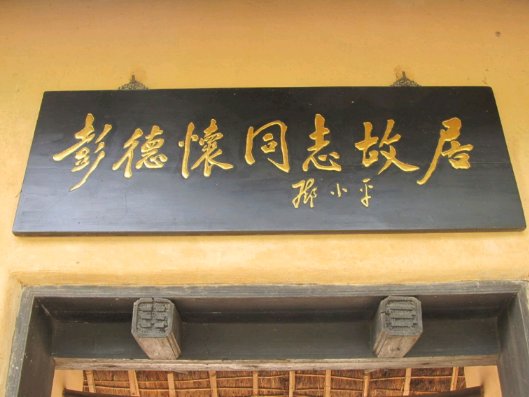 彭德怀同志故居
邓小平